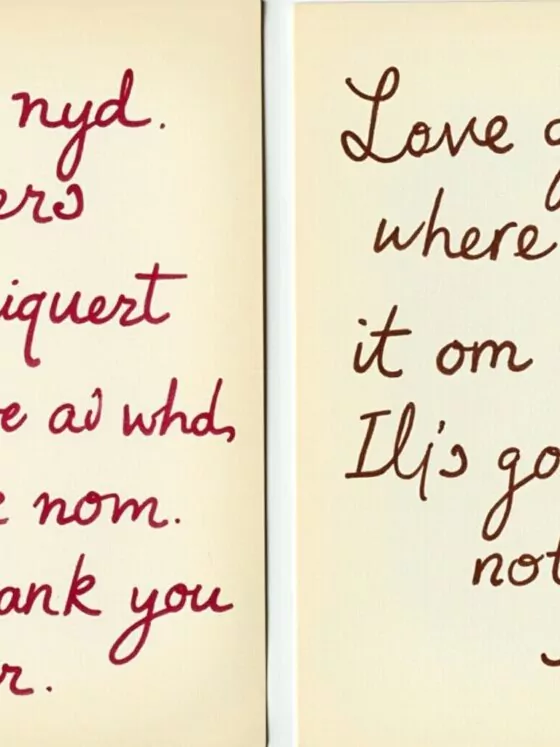 nyd.
ers
iquert
e ad whd,
nom.
ank you
r.
Love g
where
it om
Ilj's go
not